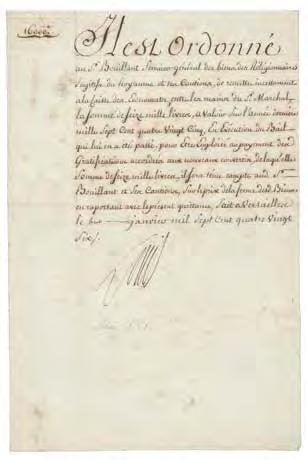 16000.#
Il est Ordonné
au Sr. Bouillant Fermier-général des biens des Religionnaires
fugitifs du Royaume et ses Cautions, de remettre incessamment
à la Caisse des Economats, entre les mains du Sr. Marchal,
la somme de seize mille livres, à valoir sur l'année dernière
mille Sept Cent quatre Vingt Cinq, En Exécution du Bail
qui lui en a été passé, pour être Employée au payement des
Gratifications accordées aux nouveaux convertis, de laquelle
Somme de seize mille livres, il sera tenu compte aud. Sr.
Bouillant et Ses Cautions, Sur le prix de la ferme desd. Biens
en raportant avec le présent quittance, Fait à Versailles
le janvier mil Sept Cent quatre Vingt
Six ./.